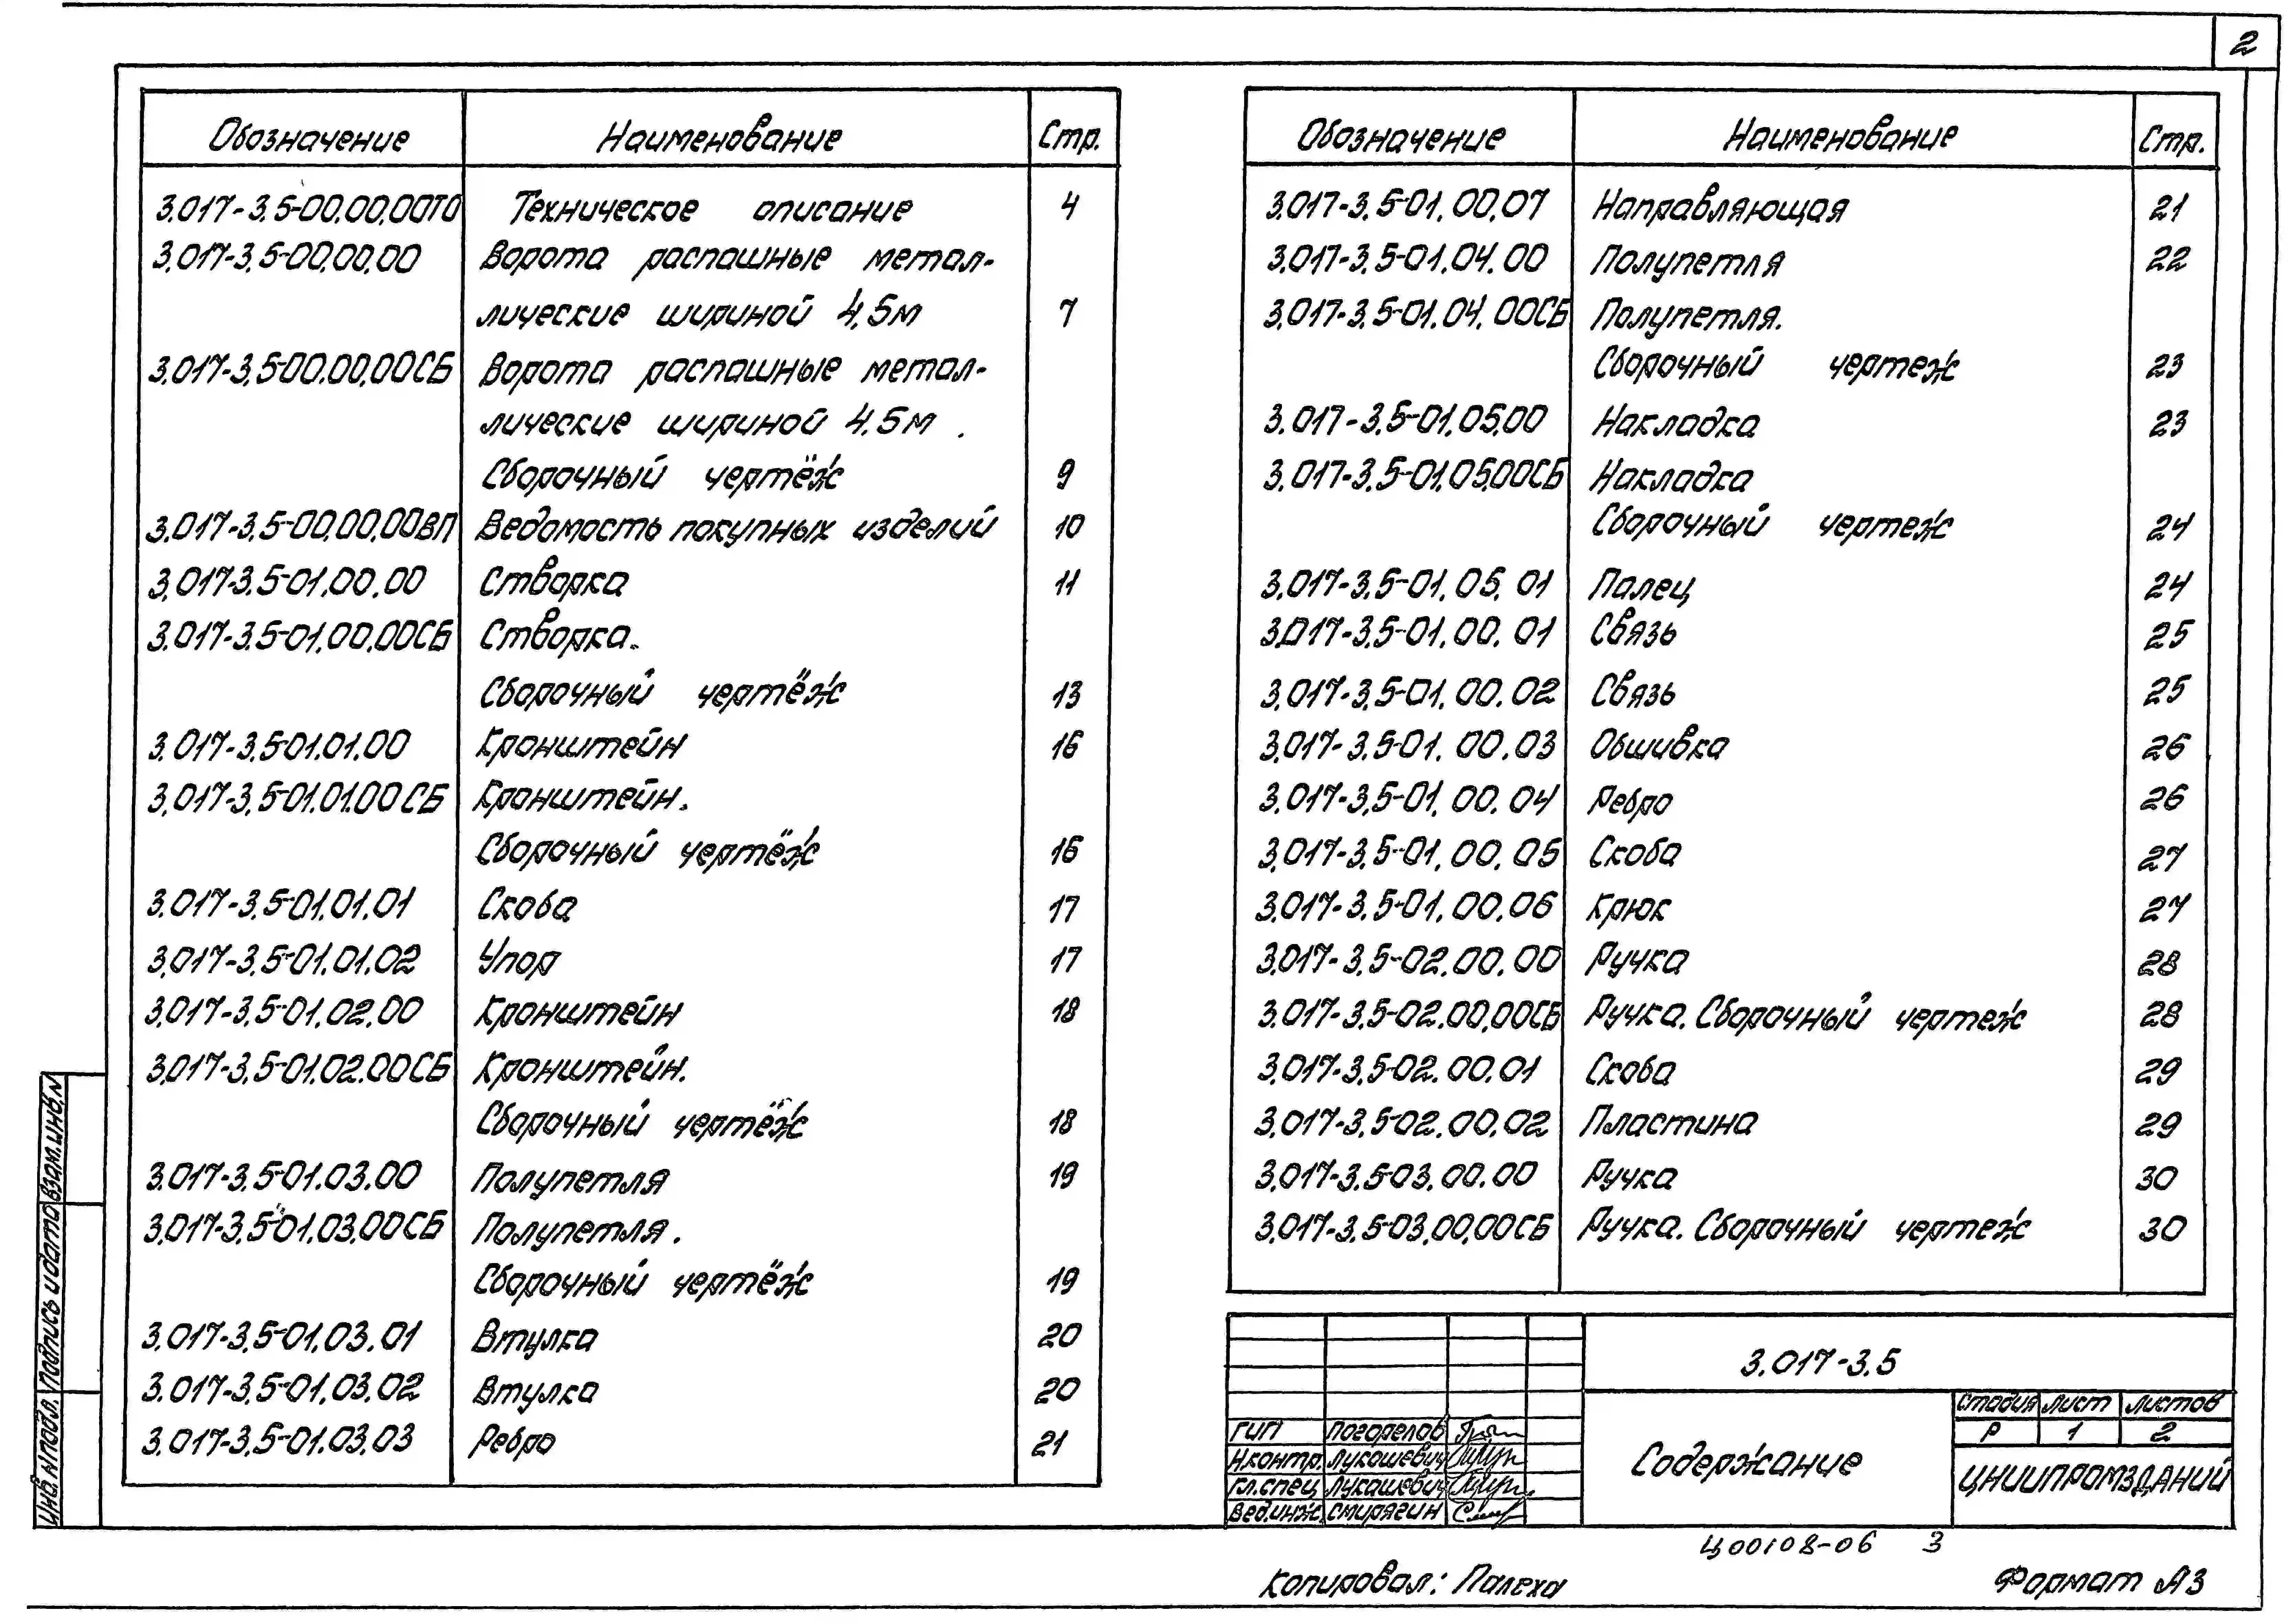 2
Обозначение Наименование Стр.
3.017-3.5-00.00.00ТО Техническое описание 4
3.017-3.5-00.00.00 Ворота распашные метал-
лические шириной 4,5м 7
3.017-3.5-00.00.00СБ Ворота распашные метал-
лические шириной 4.5м.
Сборочный чертёж 9
3.017-3.5-00.00.00ВП Ведомость покупных изделий 10
3.017-3.5-01.00.00 Створка 11
3.017-3.5-01.00.00СБ Створка.
Сборочный чертёж 13
3.017-3.5-01.01.00 Кронштейн 16
3.017-3.5-01.01.00СБ Кронштейн.
Сборочный чертёж 16
3.017-3.5-01.01.01 Скоба 17
3.017-3.5-01.01.02 Упор 17
3.017-3.5-01.02.00 Кронштейн 18
3.017-3.5-01.02.00СБ Кронштейн.
Сборочный чертёж 18
3.017-3.5-01.03.00 Полупетля 19
3.017-3.5-01.03.00СБ Полупетля.
Сборочный чертёж 19
3.017-3.5-01.03.01 Втулка 20
3.017-3.5-01.03.02 Втулка 20
3.017-3.5-01.03.03 Ребро 21
Обозначение Наименование Стр.
3.017-3.5-01.00.07 Направляющая 21
3.017-3.5-01.04.00 Полупетля 22
3.017-3.5-01.04.00СБ Полупетля.
Сборочный чертеж 23
3.017-3.5-01.05.00 Накладка 23
3.017-3.5-01.05.00СБ Накладка
Сборочный чертеж 24
3.017-3.5-01.05.01 Палец 24
3.017-3.5-01.00.01 Связь 25
3.017-3.5-01.00.02 Связь 25
3.017-3.5-01.00.03 Обшивка 26
3.017-3.5-01.00.04 Ребро 26
3.017-3.5-01.00.05 Скоба 27
3.017-3.5-01.00.06 Крюк 27
3.017-3.5-02.00.00 Ручка 28
3.017-3.5-02.00.00СБ Ручка. Сборочный чертеж 28
3.017-3.5-02.00.01 Скоба 29
3.017-3.5-02.00.02 Пластина 29
3.017-3.5-03.00.00 Ручка 30
3.017-3.5-03.00.00СБ Ручка. Сборочный чертеж 30
3.017-3.5
Содержание
Стадия Лист Листов
Р 1 2
ЦНИИПРОМЗДАНИЙ
ГИП Погорелов
Н.контр. Лукашевич
Гл.спец Лукашевич
Вед.инж Смирягин
Взам.инв.N
Подпись и дата
Инв.N подл.
Ц00108-06 3
Копировал: Палеха
Формат А3